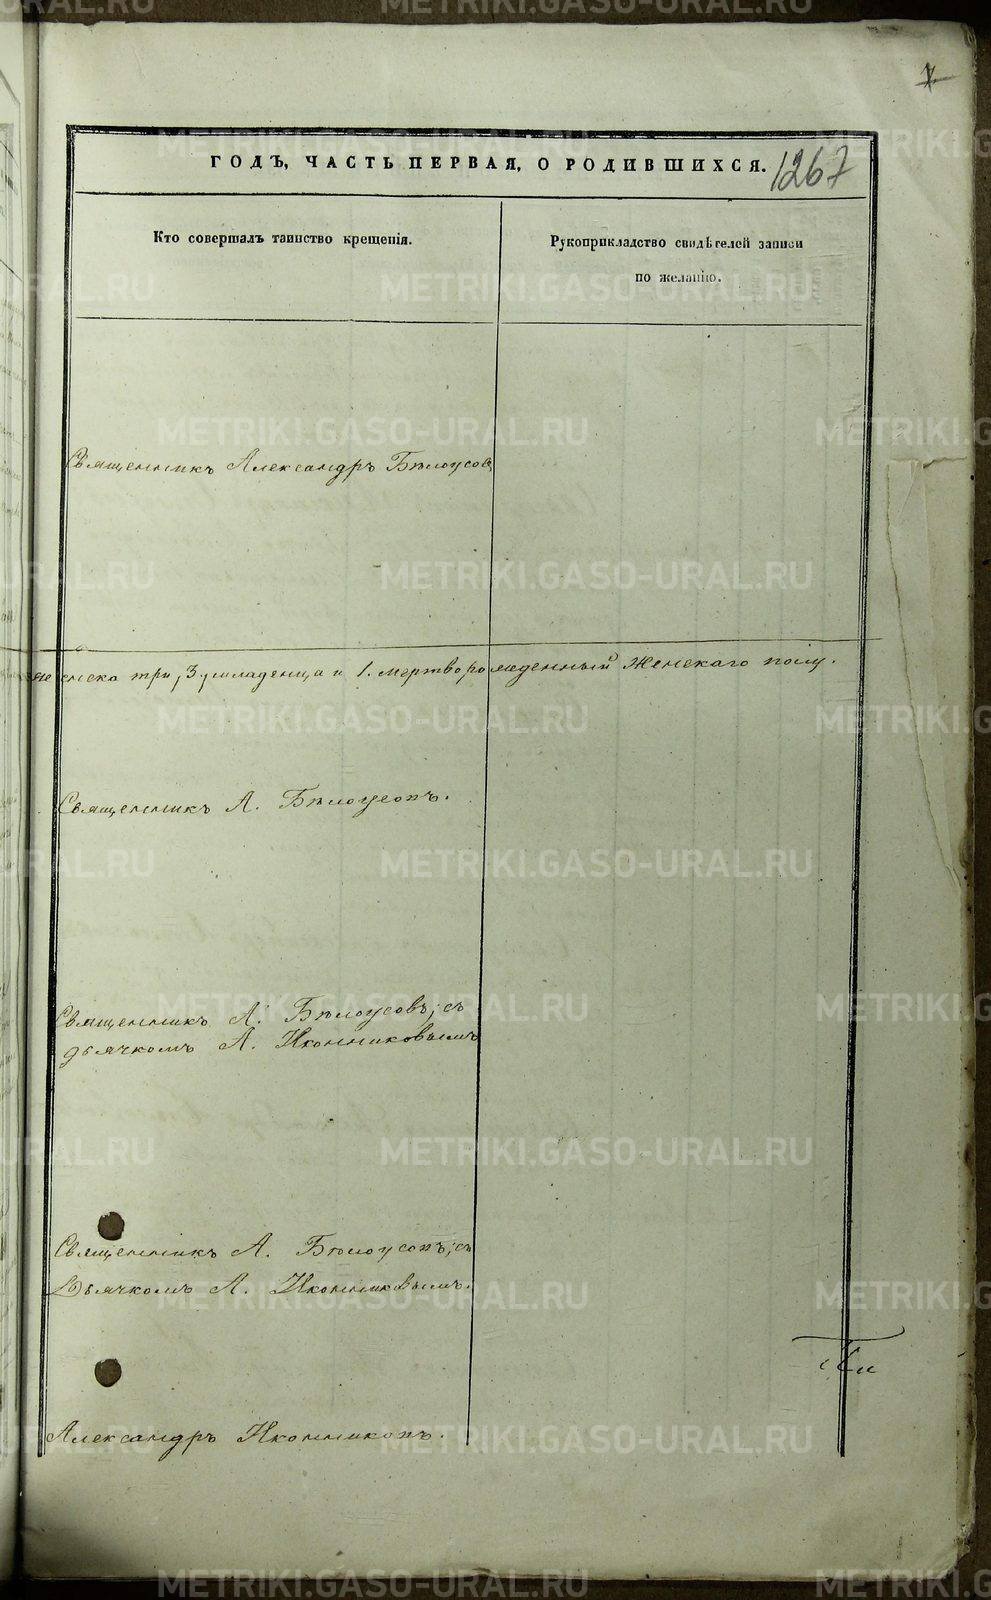 ГОДЪ, ЧАСТЬ ПЕРВАЯ, О РОДИВШИХСЯ.
1267
Кто совершалъ таинство крещенія.
Рукоприкладство свидѣтелей записи
по желанію.
Священникъ Александръ Бѣлоусовъ
женска три, 3, младенца и 1. мертворожденный женскаго полу.
Священникъ А. Бѣлоусовъ.
Священникъ А. Бѣлоусовъ; съ
дьячкомъ А. Иконниковымъ
Священникъ А. Бѣлоусовъ; съ
Дьячкомъ А. Иконниковымъ.
Александръ Иконниковъ.
METRIKI.GASO-URAL.RU